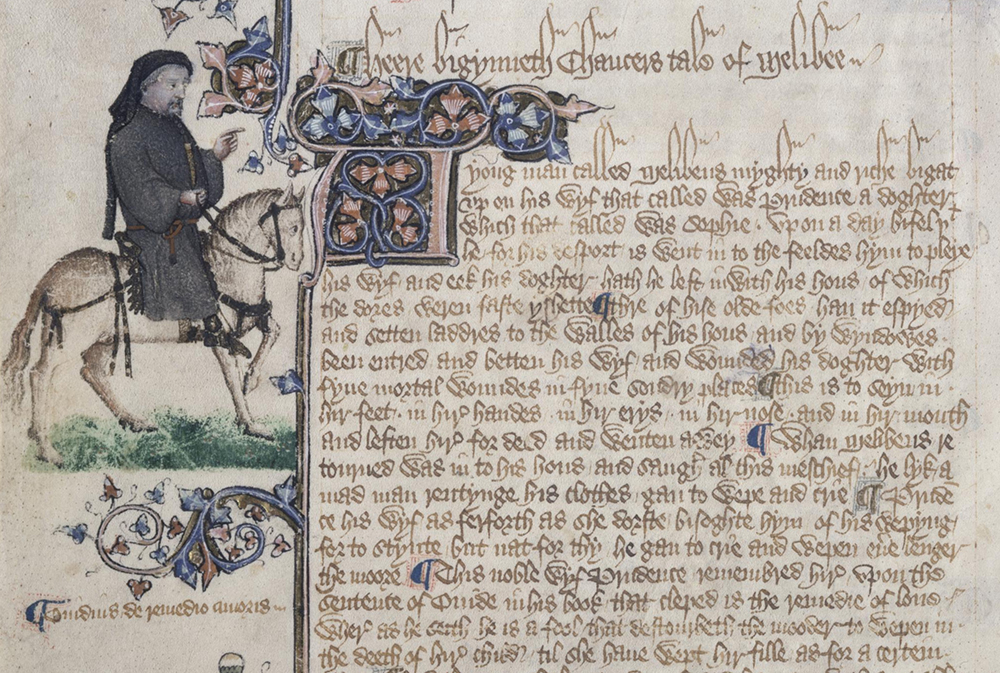 ¶ Heere bigynneth Chaucers tale of Melibee
A
yong man called Melibeus myghty and riche bigat
vp on his wyf that called was Prudence a doghter
which that called was Sophie · vpon a day bifel þt
he for his desport is went in to the feeldes hym to pleye
his wyf and eek his doghter hath he left inwith his hous of which
the dores weren faste yshette ¶ thre of hise olde foes han it espyed
and setten laddres to the walles of his hous and by wyndowes
been entred and betten his wyf and wounded his doghter with
fyue mortal woundes in fyue sondry places ¶ this is to seyn in
hir feet · in hir handes · in hir erys · in hir nose · and in hir mouth
and leften hir for deed and wenten awey ¶ Whan Melibeus re
tourned was in to his hous and saugh al this meschief · he lyk a
mad man rentynge his clothes gan to wepe and crie ¶ Pruden
ce his wyf as ferforth as she dorste bisoghte hym of his wepyng
for to stynte but nat for thy he gan to crie and wepen euere lenger
the moore ¶ This noble wyf Prudence remembred hir vpon the
sentence of Ouide in his book that cleped is the remedie of loue
wher as he seith he is a fool that destourbeth the mooder to wepen in
the deeth of hir child til she haue wept hir fille as for a certein
¶ Ouidius de remedio amoris